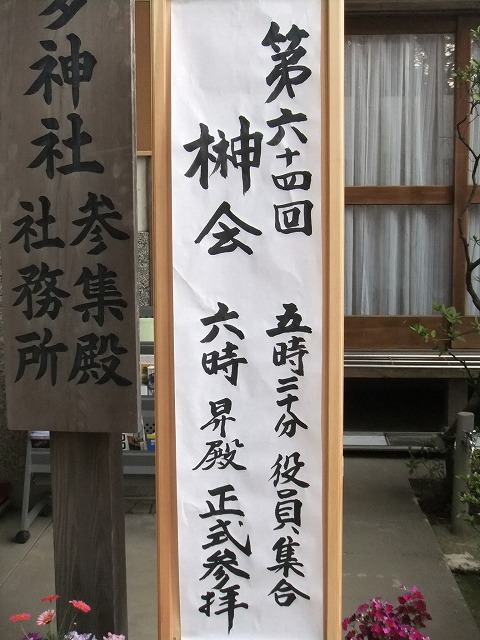 第六十四回
榊会
五時二十分 役員集合
六時 昇殿 正式参拝
神社
参集殿
社務所